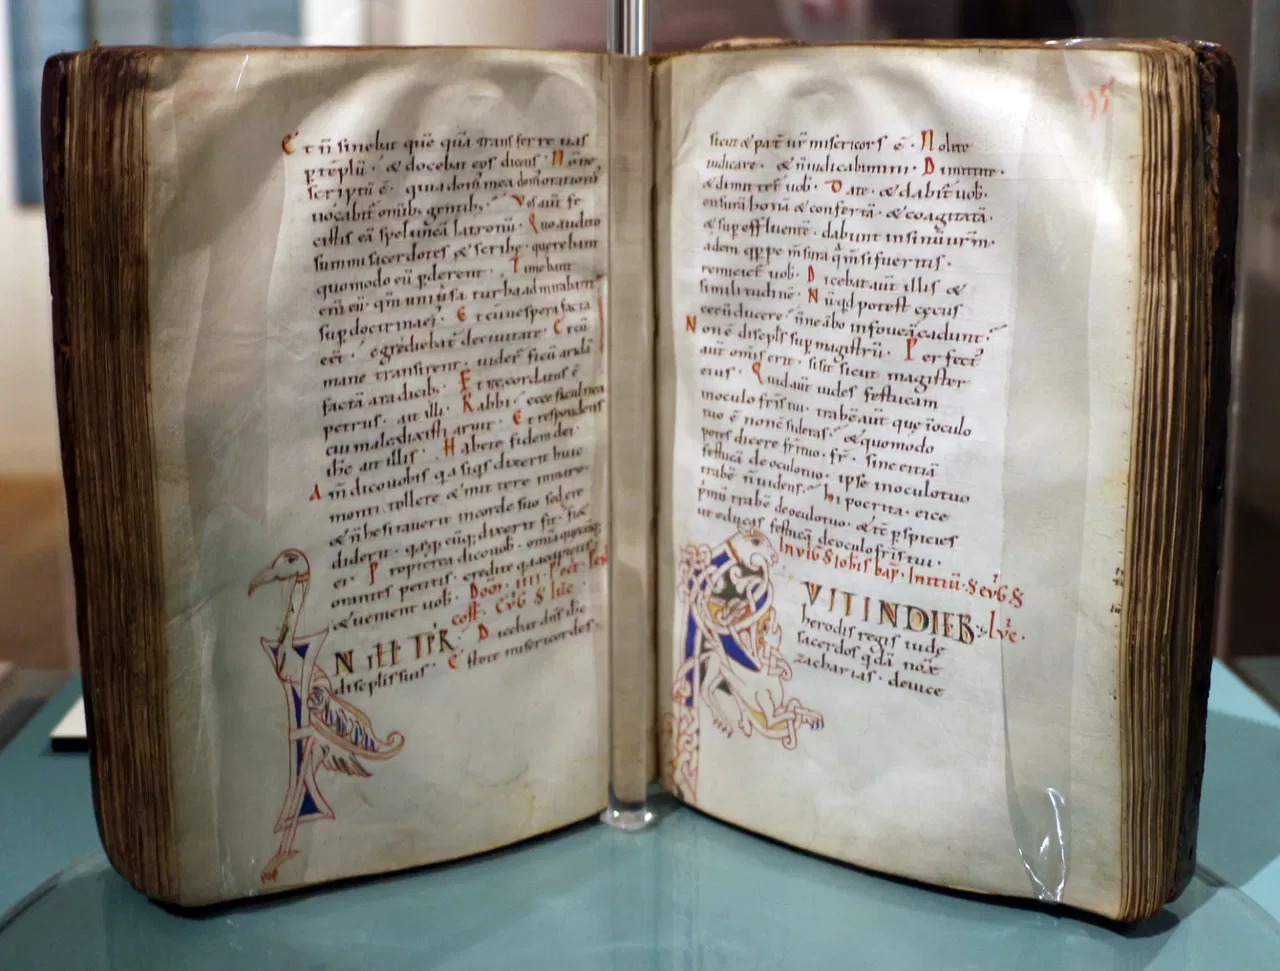 Et n̄ sinebat quē quā transferre uas
p̱ tēplū · & docebat eos dicens · None
scriptū ē · quia dom̄ mea dom̄ orationis
uocabit̄ omīb; gentib; · Vos aut̄ fe
cistis eā speluncā latronū · Quo audito
summi sacerdotes & scribe · querebant
quomodo eū p̱derent · Timebant
enī eū · qm̄ uniuṡa turba admirabant̄
sup̱ doctrina ei · Et cū uespera facta
eēt · egrediebat̄ de ciuitate · Et cū
mane transirent · uider̄ ficū aridā
factā a radicib; · Et recordatus ē
petrus · ait illi · Rabbi · ecce ficulnea
cui maledixisti aruit · Et respondens
ihc̄ ait illis · Habete fidem dei ·
Am̄ dico uobis q̇a q̇sq̇s dixerit huic
monti · tollere & mittere in mare ·
& n̄ hesitauerit in corde suo sed cre
diderit · q̇a q̇cūq; dixerit fit · fiet
ei · Propterea dico uob̄ · omīa quecūq;
orantes petitis · credite q̇a accipietis
& uenient uob̄ · Dom̄ · IIII · post · 
IN ILL TPR · Dicebat dn̄s ih̄c
discip̄lis suis · Estote misericordes ·
sicut & pat̄ ur̄ misericors ē · Nolite
iudicare · & n̄ iudicabimini · Dimittite ·
& dimittet̄ uob̄ · Date · & dabit̄ uob̄ ·
mensurā bonā & confertā · & coagitatā ·
& sup̱effluentē · dabunt in sinū ur̄m ·
Eadem q̇ppe m̄sura q̇ m̄si fueritis ·
remetiet̄ uob̄ · Dicebat aut̄ illis &
similitudinē · Nūq̇d potest cecus
cecū ducere · n̄ne ābo in foueā cadunt ·
Non ē discip̄ls sup̱ magistrū · Perfect̄
aut̄ om̄is erit · si sit sicut magister
eius · Quid aut̄ uides festucam
in oculo fr̄is tui · trabē aut̄ que ī oculo
tuo ē non c̄sideras · & quomodo
potes dicere fr̄i tuo · fr̄ · sine eiciā
festucā de oculo tuo · ipse in oculo tuo
trabē n̄ uidens · hipocrita · eice
p̄mū trabē de oculo tuo · & tc̄ p̱spicies
ut educas festucā de oculo fr̄is tui ·
In uiḡ S ioh̄is bap̄ · Initiū · S eūḡ S
VIT IN DIEB; · Luc̄ ·
herodis regis iudę
sacerdos q̇dā noīe
zacharias · de uice
95